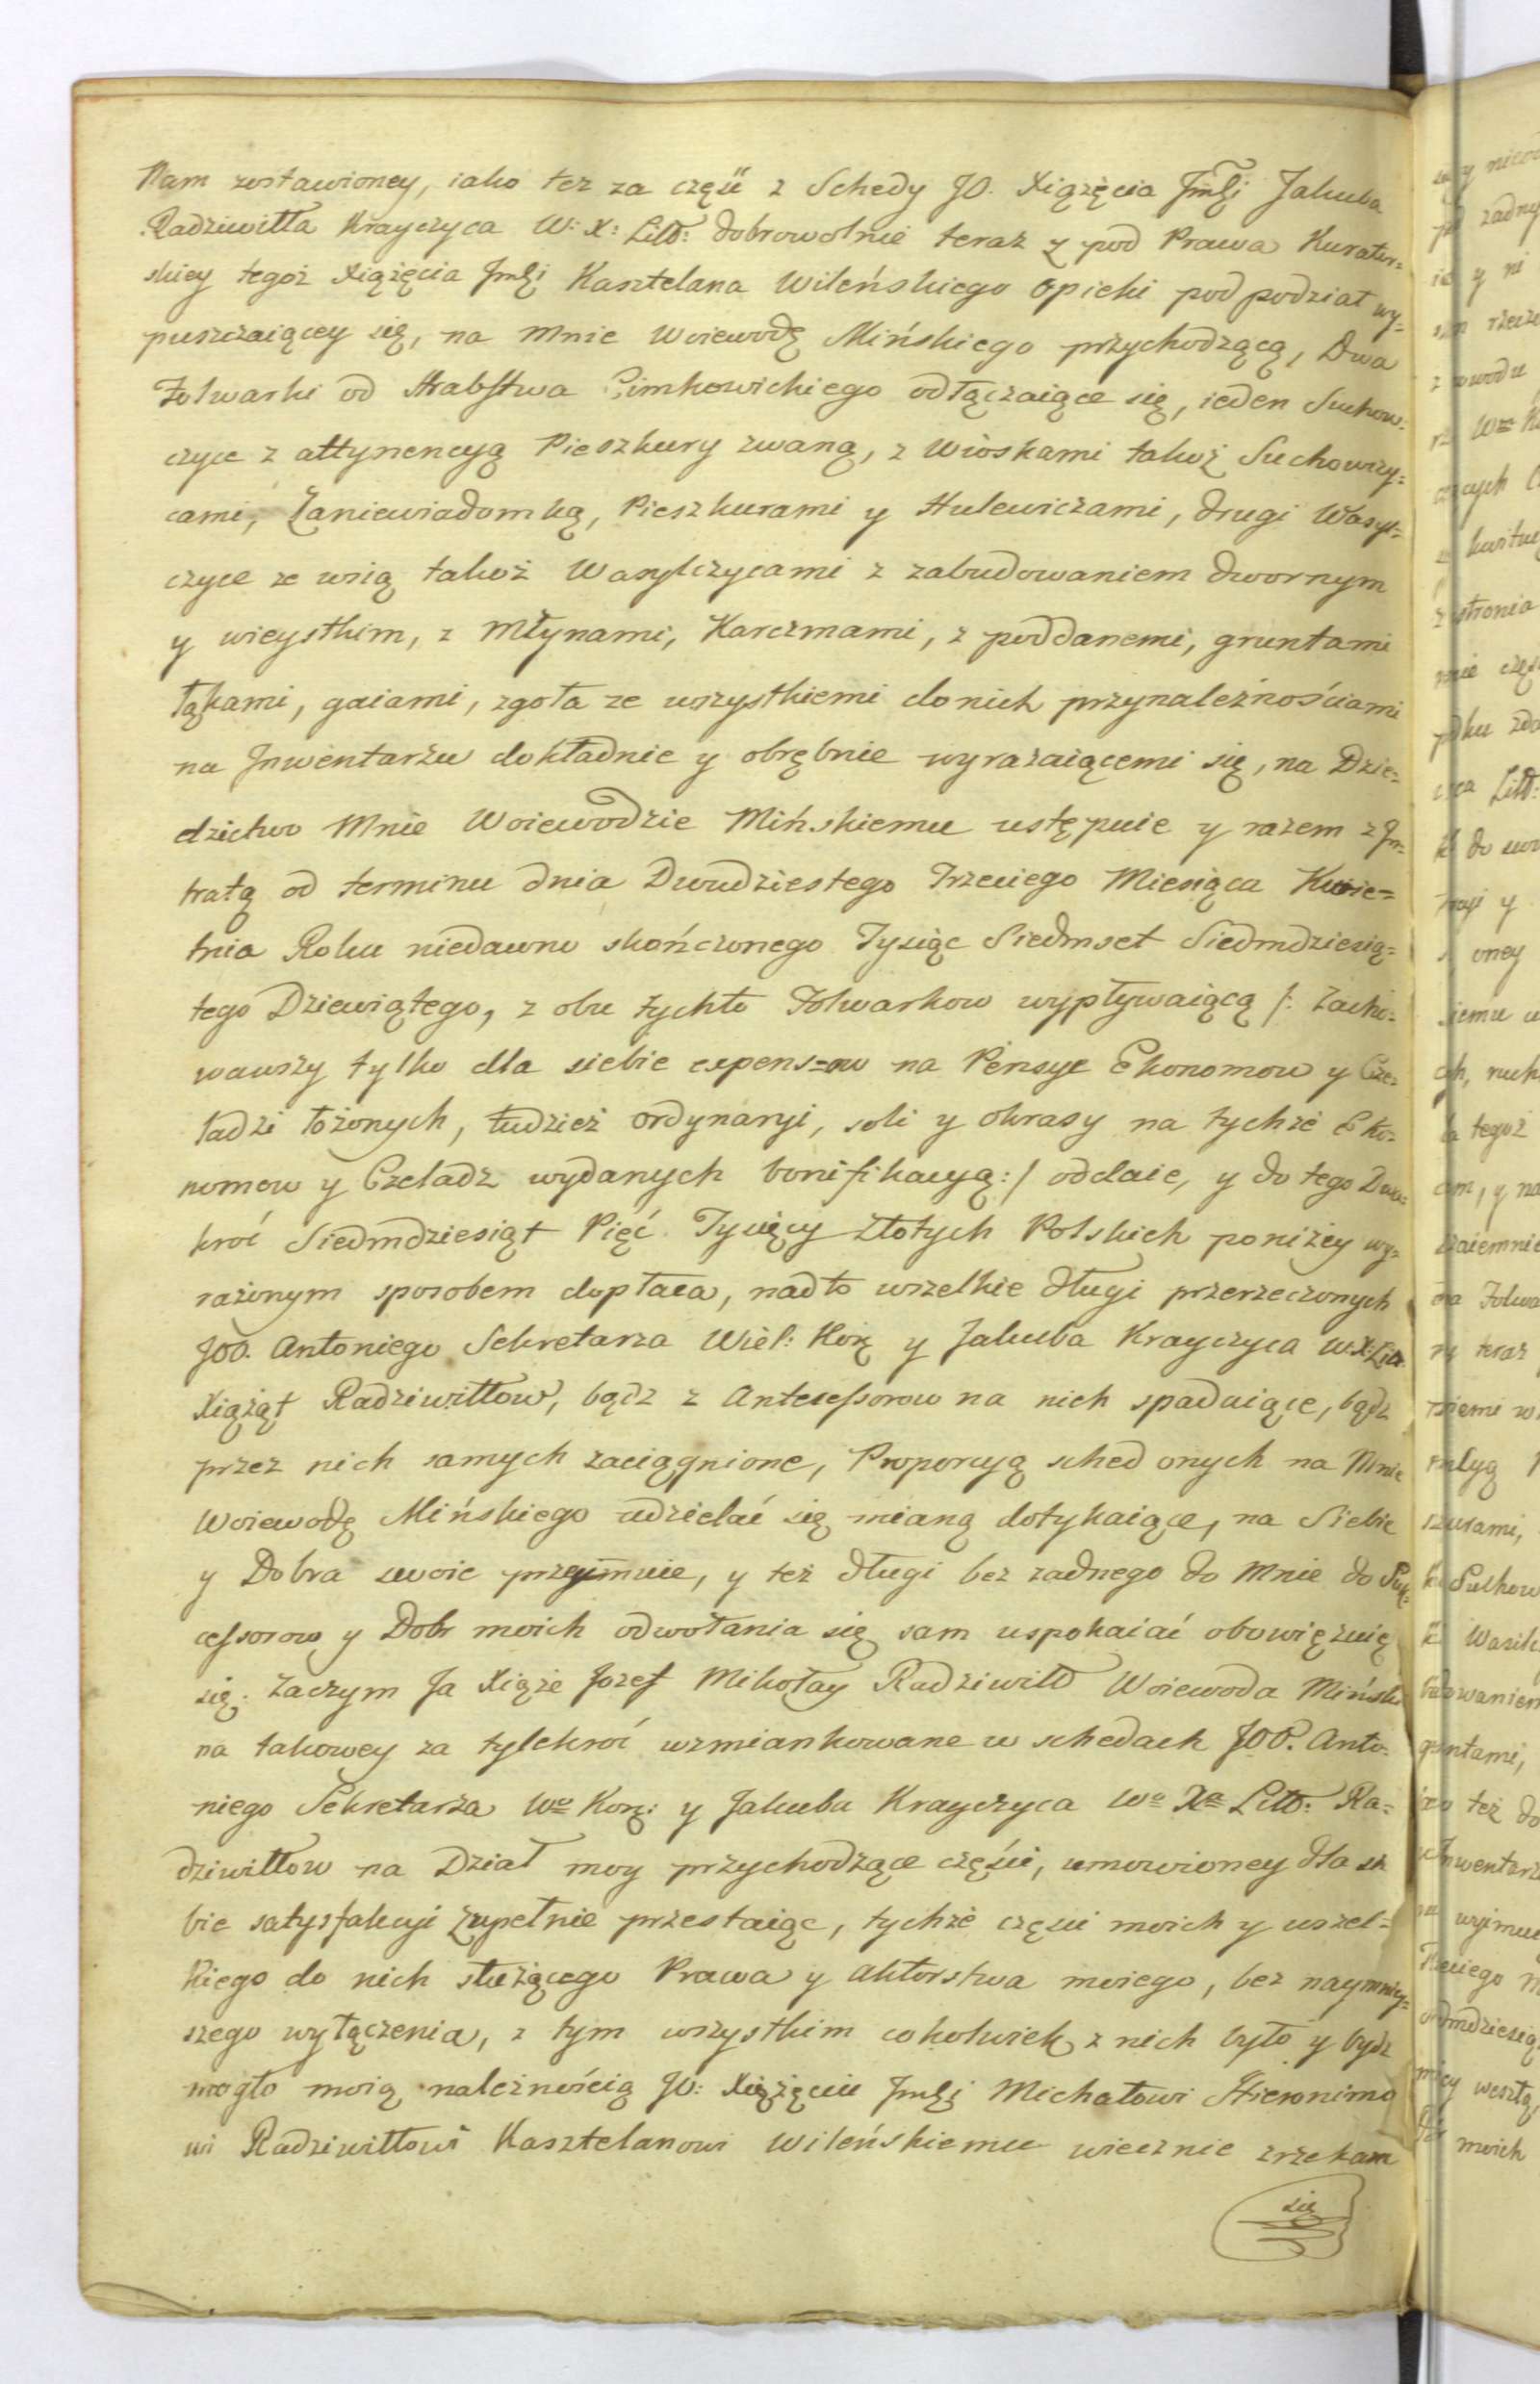 Nam zostawioney, iako tez za części z Schedy JO. Xiążęcia Jmći Jakuba
Radziwiłła Krayczyca W: X: Litt: dobrowolnie teraz z pod Prawa Kurator=
skiey tegoż Xiążęcia Jmći Kasztelana Wileńskiego opieki pod podział wy=
puszczaiącey się, na Mnie Woiewodę Mińskiego przychodzącą, Dwa
Folwarki od Hrabstwa Cimkowickiego odłączaiące się, ieden Suchow=
czyce z attynencyą Pieszkury zwaną, z Wioskami takoż Suchowczy=
cami, Zaniewiadomką, Pieszkurami y Hulewiczami, drugi Wasyl=
czyce ze wsią takoż Wasylczycami z zabudowaniem dwornym
y wieyskim, z Młynami, Karczmami, z poddanemi, gruntami
łąkami, gaiami, zgoła ze wszystkiemi do nich przynależnościami
na Jnwentarzu dokładnie y obrębnie wyrażaiącemi się, na Dzie=
dzictwo Mnie Woiewodzie Mińskiemu ustępuie y razem z Jn=
tratą od terminu dnia Dwudziestego Trzeciego Miesiąca Kwie=
tnia Roku niedawno skończonego Tysiąc Siedmset Siedmdziesią=
tego Dziewiątego, z obu tychto Folwarkow wypływaiącą /: Zacho=
wawszy tylko dla siebie expensow na Pensye Ekonomow y Cze=
ladzi łożonych, tudzież ordynaryi, soli y okrasy na tychże Eko=
nomow y Czeladz wydanych bonifikacyą :/ oddaie, y do tego Dwa=
kroć Siedmdziesiąt Pięć Tysięcy Złotych Polskich poniżey wy=
rażonym sposobem dopłaca, nadto wszelkie długi przerzeczonych
JOO. Antoniego Sekretarza Wiel: Korę y Jakuba Krayczyca W.X.Litt.
Xiążąt Radziwiłłow, bądz z Antecessorow na nich spadaiące, bądz
przez nich samych zaciągnione, Proporcyą sched onych na Mnie
Woiewodę Mińskiego udzielać się mianą dotykaiące, na Siebie
y Dobra swoie przyjmuie, y też długi bez zadnego do Mnie do Suk=
cessorow y Dobr moich odwołania się sam uspokaiać obowięzuię
się. Zaczym Ja Xiąże Jozef Mikołay Radziwiłł Woiewoda Miński
na takowey za tylekroć wzmiankowane w schedach JOO. Anto=
niego Sekretarza Wo Korę: y Jakuba Krayczyca Wo Xa Litt: Ra=
dziwiłłow na Dział moy przychodzące części, umowioney dla sie
bie satysfakcyi zupełnie przestaiąc, tychże części moich y wszel=
kiego do nich służącego Prawa y Aktorstwa moiego, bez naymniey=
szego wyłączenia, z tym wszystkim cokolwiek z nich było y bydz
mogło moią należnością JO: Xiążęciu Jmći Michałowi Hieronimo
wi Radziwiłłowi Kasztelanowi Wileńskiemu wiecznie zrzekam
się